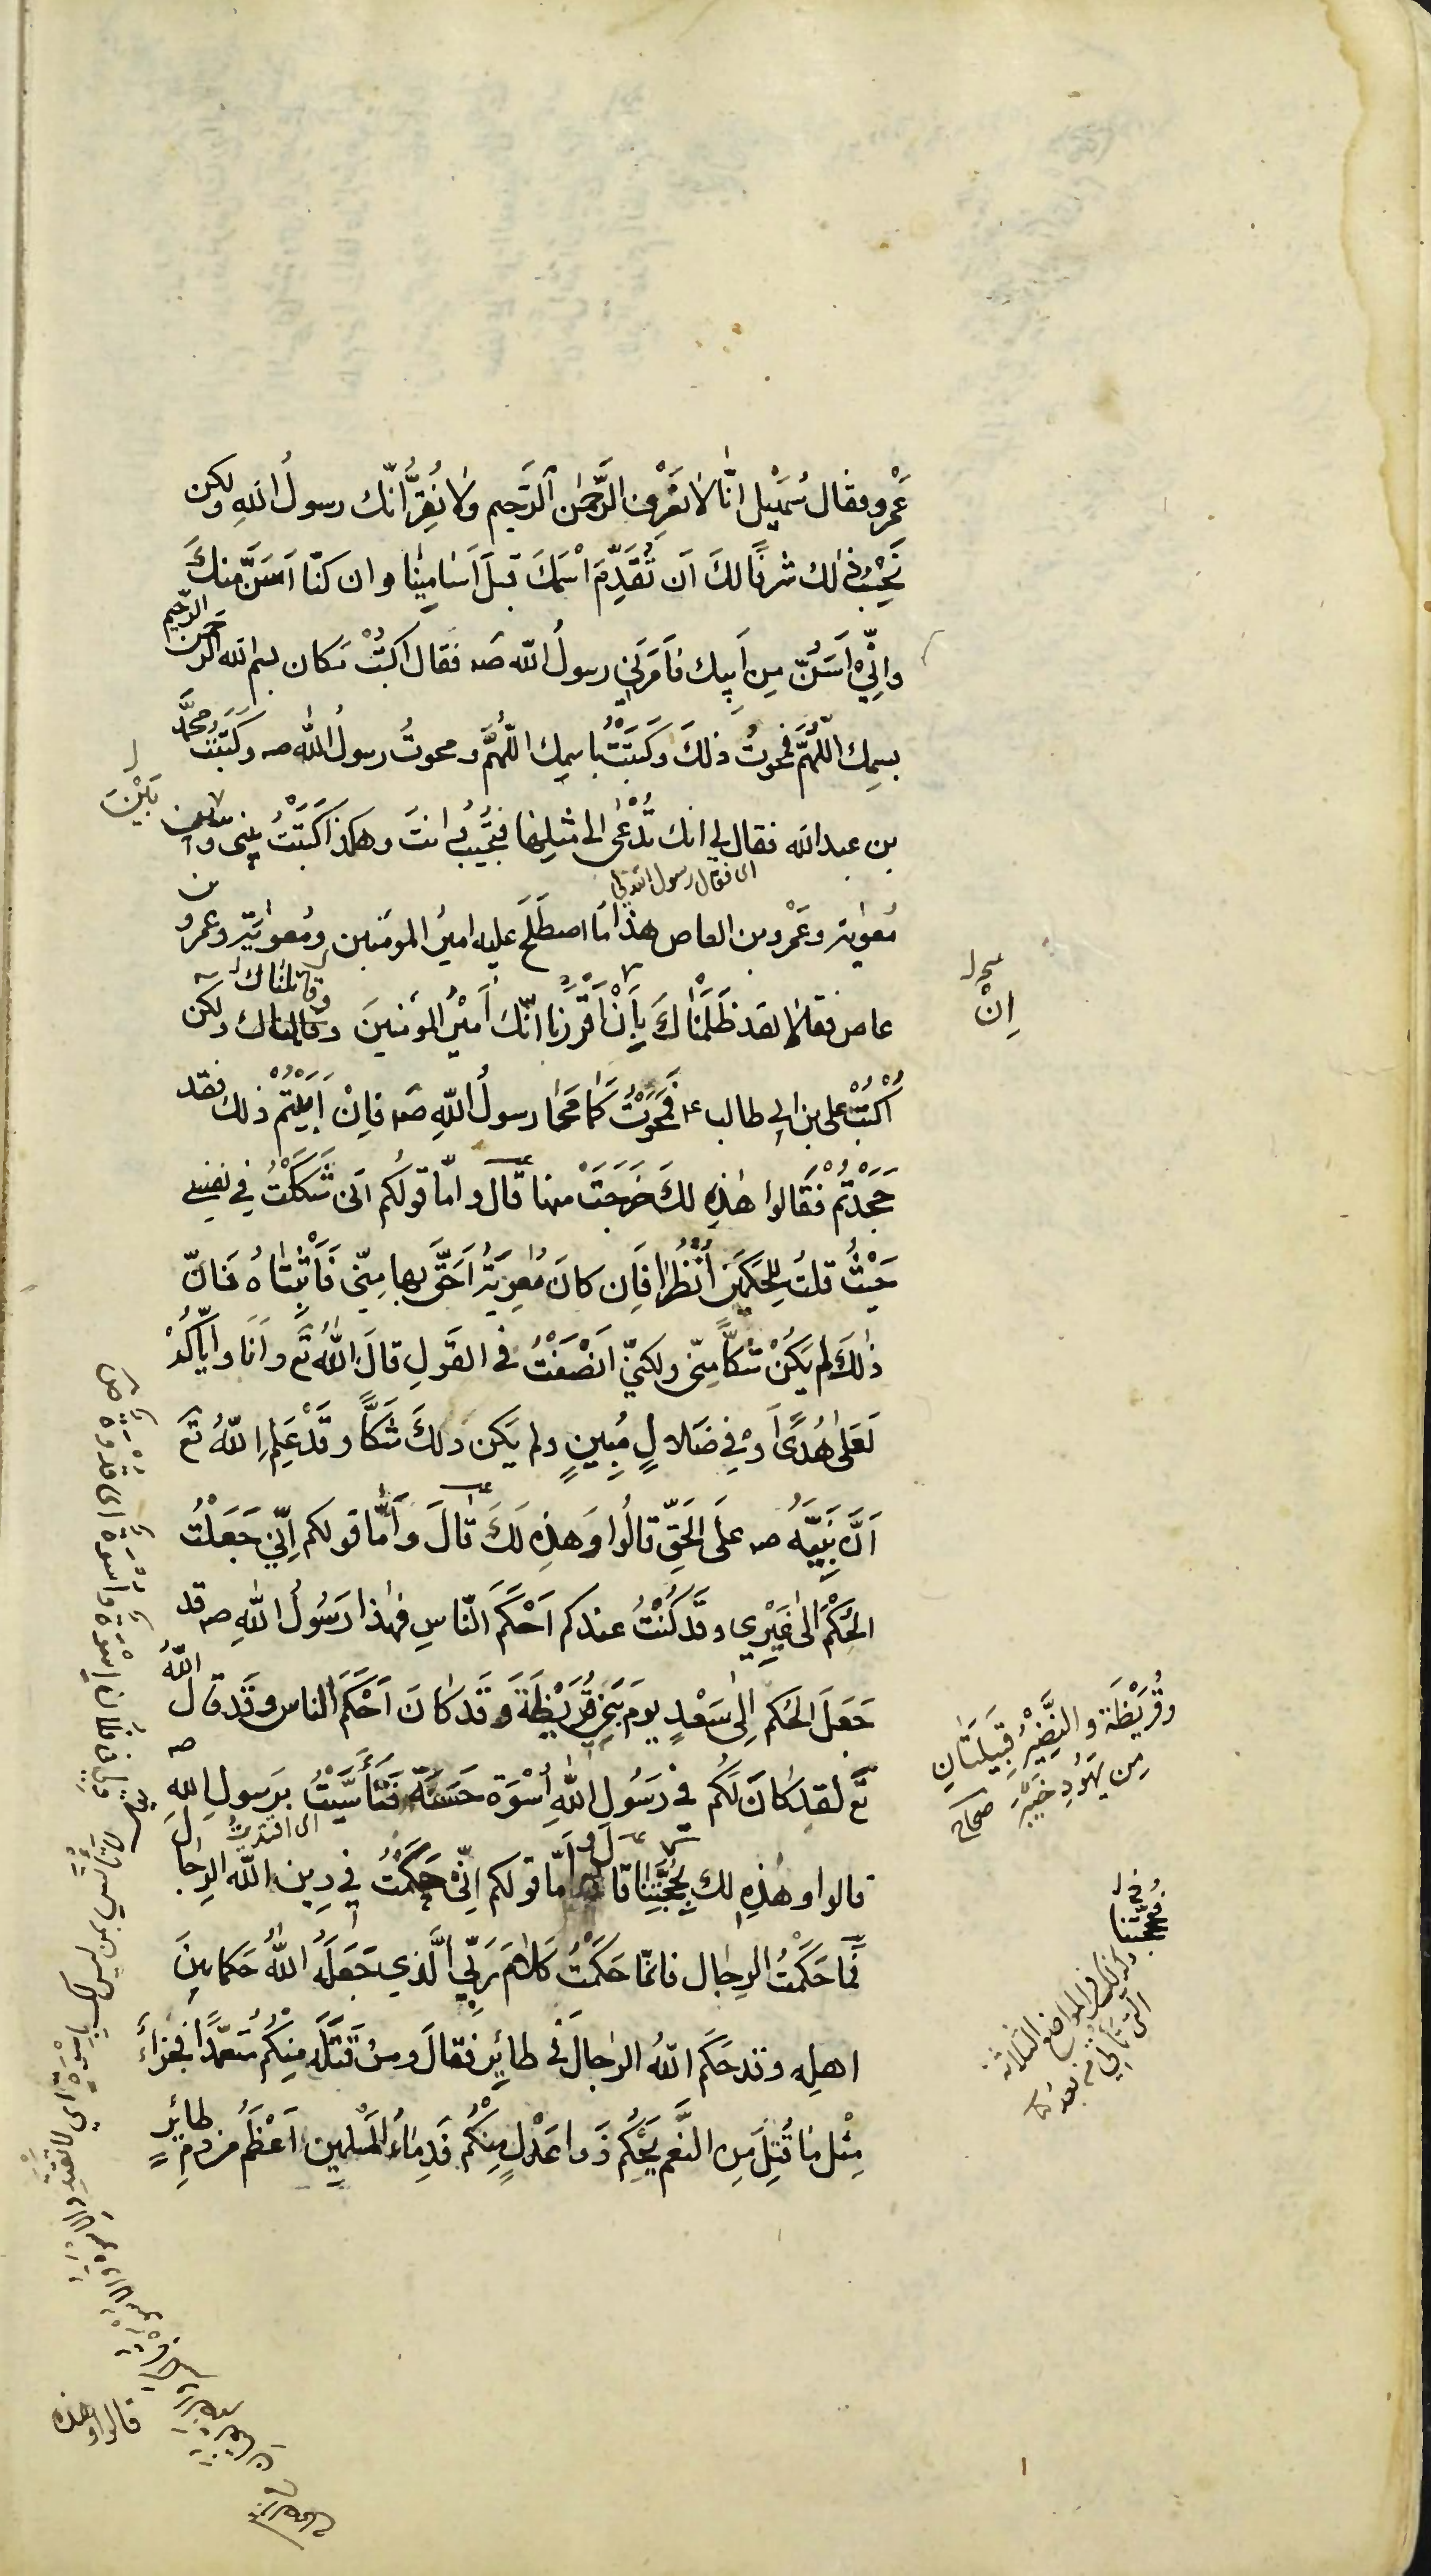 عَمْرو فقال سُهَيْل انّا لا نَعْرِف الرَّحمٰن الرَّحيم ولا نُقِرُّ انّك رسولُ اللهِ ولكن
نَحْسِبُ ذلك شرفًا لكَ اَن تُقَدِّمَ اسْمَكَ قبلَ اَسامِينا وان كنّا اَسَنَّ منكَ
وانّي اَسَنُّ مِن اَبِيك فاَمَرَني رسولُ اللّه صَه فقال اكتُبْ مكان بسم الله الرحمن الرّحيم
بسمِك اللّهُمَّ فمحوتُ ذلكَ وكَتَبْتُ باسمِك اللّهُمَّ ومحوتُ رسولُ الله صه وكَتَبْتُ محمَّد
بن عبد الله فقال لي انك تُدْعى الى مثلِها فتُجِيبُ وانتَ وهكذا كَتَبْتُ بيني و
بَيْنَ
اى فقال رسول الله لي
مُعٰوية وعَمْرو بن العاص هذا مَا اصطَلَحَ عليه اميرُ المومنين ومُعٰوية وعمرو بن
عاص فقالا لقد ظَلَمْناكَ بِأَنْ اَقْرَرْنا انّكَ اَميرُ المومنينَ وقاتلناك ولكن
وقاتلناك
اِنْ
اُكْتُبْ على بن ابي طالب ع فَمَحَوْتُ كَمَا مَحَا رسولُ اللّهِ صه فاِنْ اَبَيْتُمْ ذلك فقد
جَحَدْتُمْ فقَالوا هٰذِه لكَ خَرَجَتْ منها قال وامّا قولُكم انّى شَكَكْتُ في نفسى
حَيْثُ قلتُ لِلحَكَمَين اُنْظُرا فَاِن كانَ مُعٰوِيَةُ اَحَقَّ بها مِنّى فَاَثْبِتَاهُ فانّ
ذٰلكَ لم يَكُنْ شَكًّا مِنّى ولكنّى اَنْصَفْتُ في القَولِ قالَ اللهُ تَع وانَا واِيّاكُمْ
لَعَلى هُدًى اَوْ في ضَلالٍ مُبِينٍ ولم يَكن ذلكَ شَكًّا وقَدْ عَلِمَ اللّهُ تَع
اَنَّ نَبِيَّهُ صه علَى الحَقّ قالُوا وَهٰذِه لَكَ قالَ وَاَمَّا قولكم اِنّى جَعَلْتُ
الحُكْمَ الى غَيْرِي وقَد كُنْتُ عندكم اَحْكَمَ النّاسِ فهٰذا رَسُولُ اللهِ صه قد
جَعَلَ الحُكم الٰى سَعْدٍ يومَ بَنى قُرَيْظَةَ وقَد كانَ اَحْكَمَ الناس وقَد قال اللّهُ
وقُرَيْظَة والنَّضِيْرُ قَبِيلَتَانِ
مِن يَهُودِ خَيْبَرَ صحاح
تَع لقد كانَ لَكُم في رَسُولِ اللهِ اُسْوَة حَسَنَة فتَأَسَّيْتُ برَسولِ الله صه
اى اقتديتُ
قالوا وهٰذِه لك بِحُجَّتِنا قال واَمّا قولكم انّى حَكَّمْتُ في دِين اللّه الرجال
في
فحُجَّتنا
وكذلك في المواضع الثلاثة
التى تأتي من بعد
فَما حَكَّمْتُ الرِجال فانمّا حَكَّمْتُ كَلامَ رَبّى الَّذي جَعَلَهُ اللّهُ حَكما بينَ
اهلِه وقد حَكَّم اللهُ الرجالَ في طائِرٍ فقالَ ومن قَتَلَه مِنكُم مُتعَمّدًا فجَزاءٌ
مِثْل مَا قُتِلَ مِن النَّعَم يَحْكُم ذَوا عَدْلٍ مِنْكُم فَدِمَاءُ المسْلمِين اَعْظَمُ من دَمِ طائِرٍ
قالوا وهذه